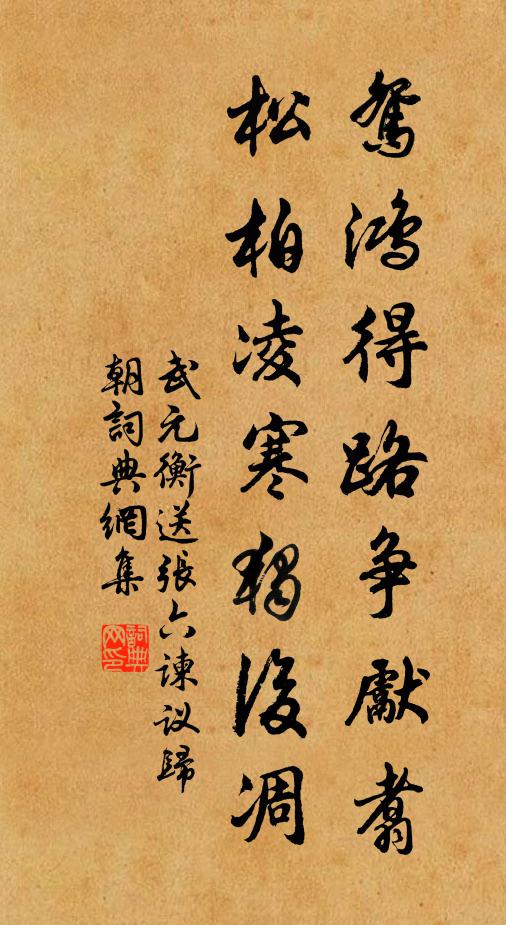 鴛鴻得路争獻翥
松柏凌寒獨後凋
武元衡送張六諫议歸
朝詞典網集
詞典
网印